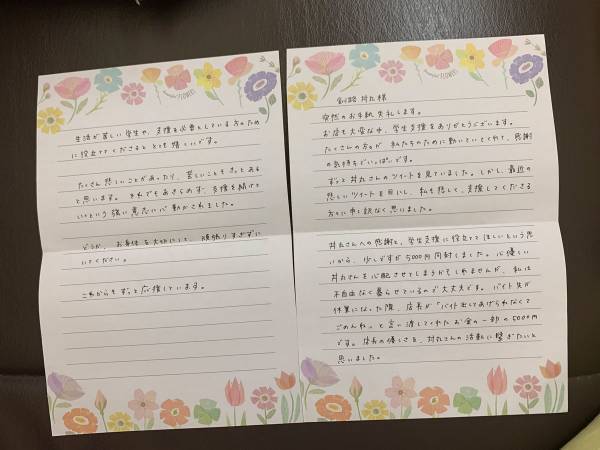 釧路 丼丸 様
突然のお手紙失礼します。
お店も大変な中、学生支援をありがとうございます。
たくさんの方々が 私たちのために動いていてくれて、感謝
の気持ちでいっぱいです。
ずっと丼丸さんのツイートを見ていました。しかし、最近の
悲しいツイートを目にし、私も悲しくて、支援してくださる
方々に申し訳なく思いました。
丼丸さんへの感謝と、学生支援に役立ててほしいという思
いから、少しですが5000円同封しました。心優しい
丼丸さんを心配させてしまうかもしれませんが、私は
不自由なく暮らせているので大丈夫です。バイト先が
休業になった際、店長が「バイト出してあげられなくて
ごめんね。」と言い渡してくれたお金の一部の5000円
です。店長の優しさを、丼丸さんの活動に繋ぎたいと
思いました。
生活が苦しい学生や、支援を必要としている方のため
に役立ててくださるととても嬉しいです。
たくさん悲しいことがあったり、苦しいこともきっとある
と思います。それでもあきらめず、支援を続けて
いくという強い意志に心動かされました。
どうか、お身体を大切にして、頑張りすぎずに
いてください。
これからもずっと応援しています。